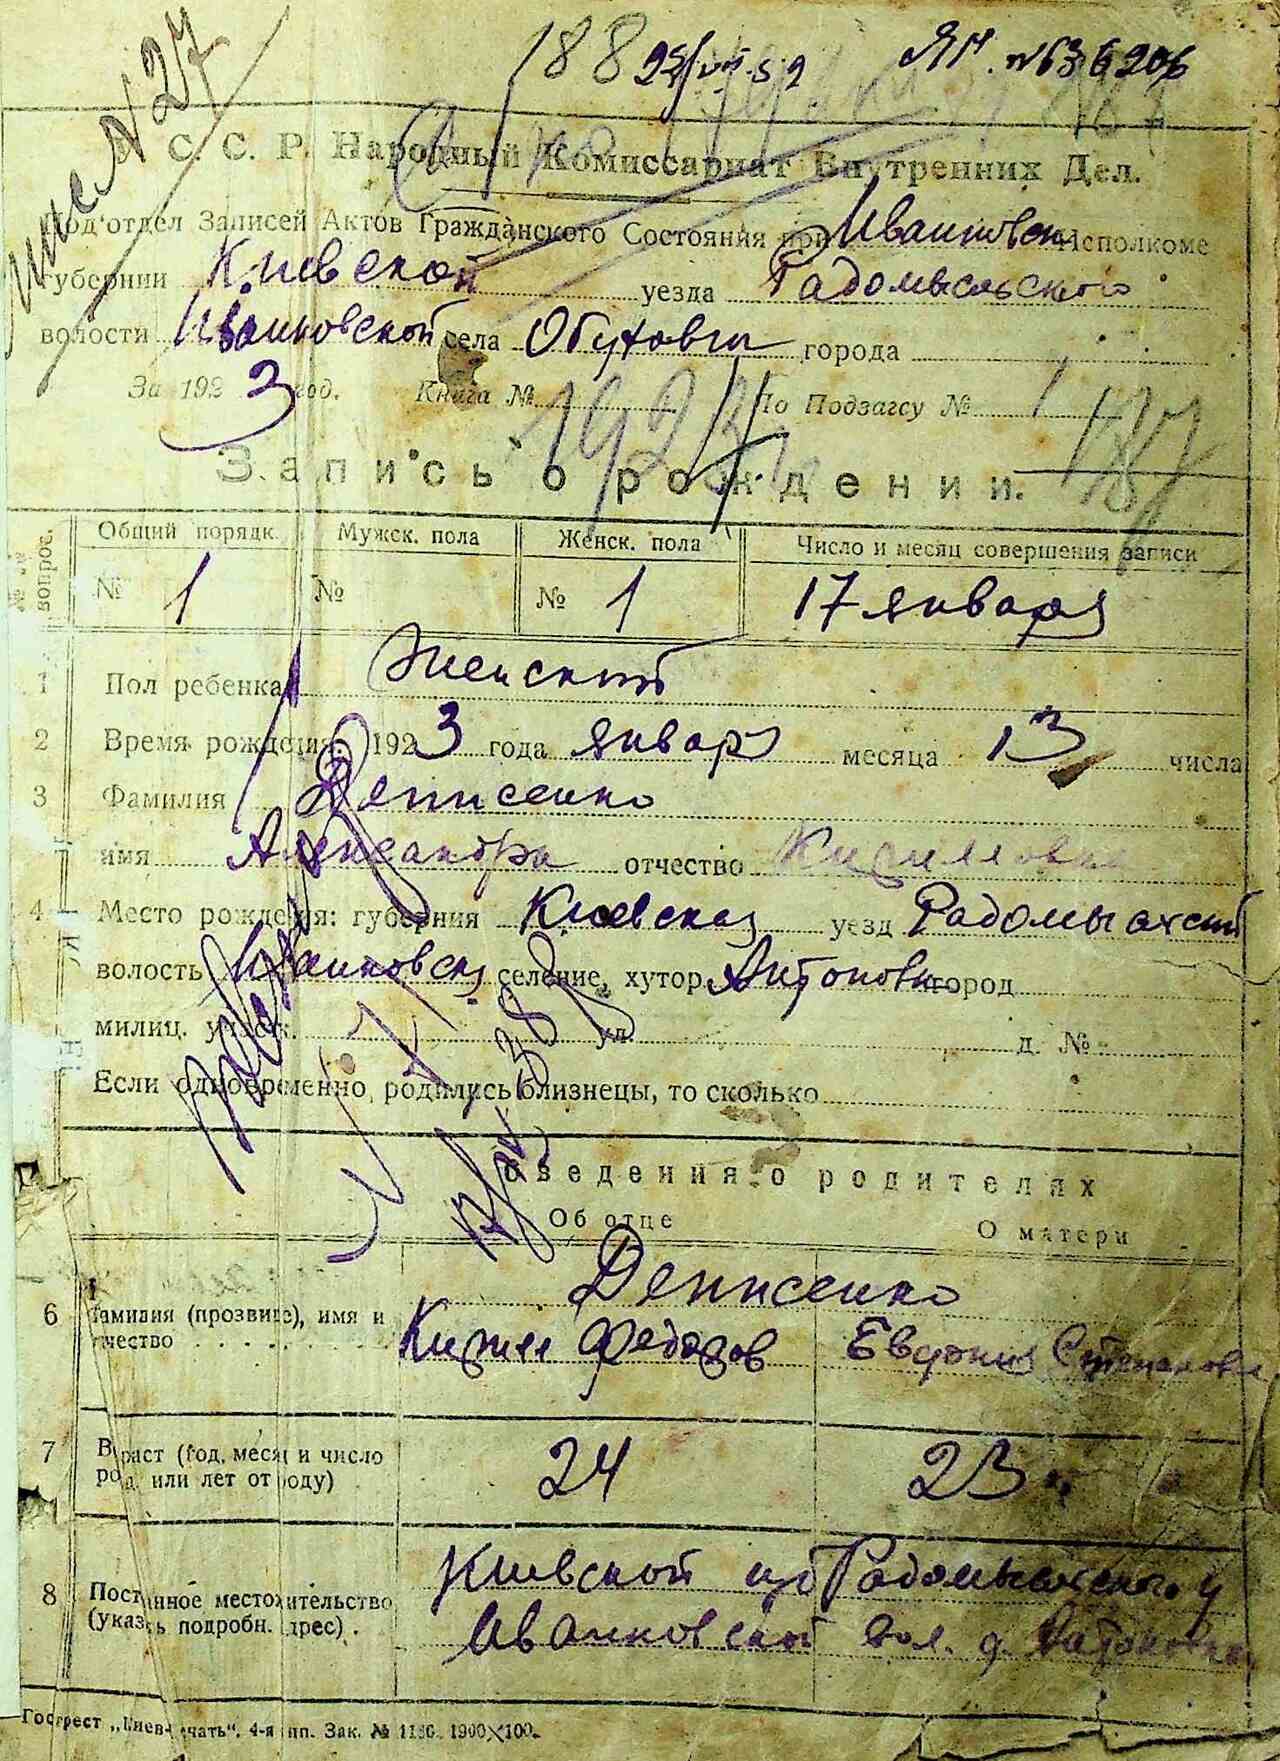 188 25/VII.52 ЯП. №636206
С. С. Р. Народный Комиссариат Внутренних Дел.
Под'отдел Записей Актов Гражданского Состояния при Иванковск Исполкоме
губернии Киевской уезда Радомысльского
волости Иванковской села Обуховичи города
За 1923 год. Книга № По Подзагсу № 1
1923
187
Запись о рождении.
№№ вопрос. Общий порядк. Мужск. пола Женск. пола Число и месяц совершения записи
№ 1 № № 1 17 января
1 Пол ребенка Женский
2 Время рождения: 1923 года января месяца 13 числа
3 Фамилия Денисенко
имя Александра отчество Кирилловна
4 Место рождения: губерния Киевская уезд Радомысльский
волость Иванковская селение, хутор Антоновка город
милиц. участк. ул. д. №
Если одновременно родились близнецы, то сколько
Сведения о родителях
Об отце О матери
6 Фамилия (прозвище), имя и отчество Денисенко
Кирилл Федоров Евдокия Степановна
7 Возраст (год, месяц и число рожд. или лет от роду) 24 23
8 Постоянное местожительство (указать подробн. адрес). Киевской губ Радомысльского у
Иванковской вол. д. Антоновка
Гострест „Киев-печать“, 4-я тип. Зак. № 1190. 1900×100.